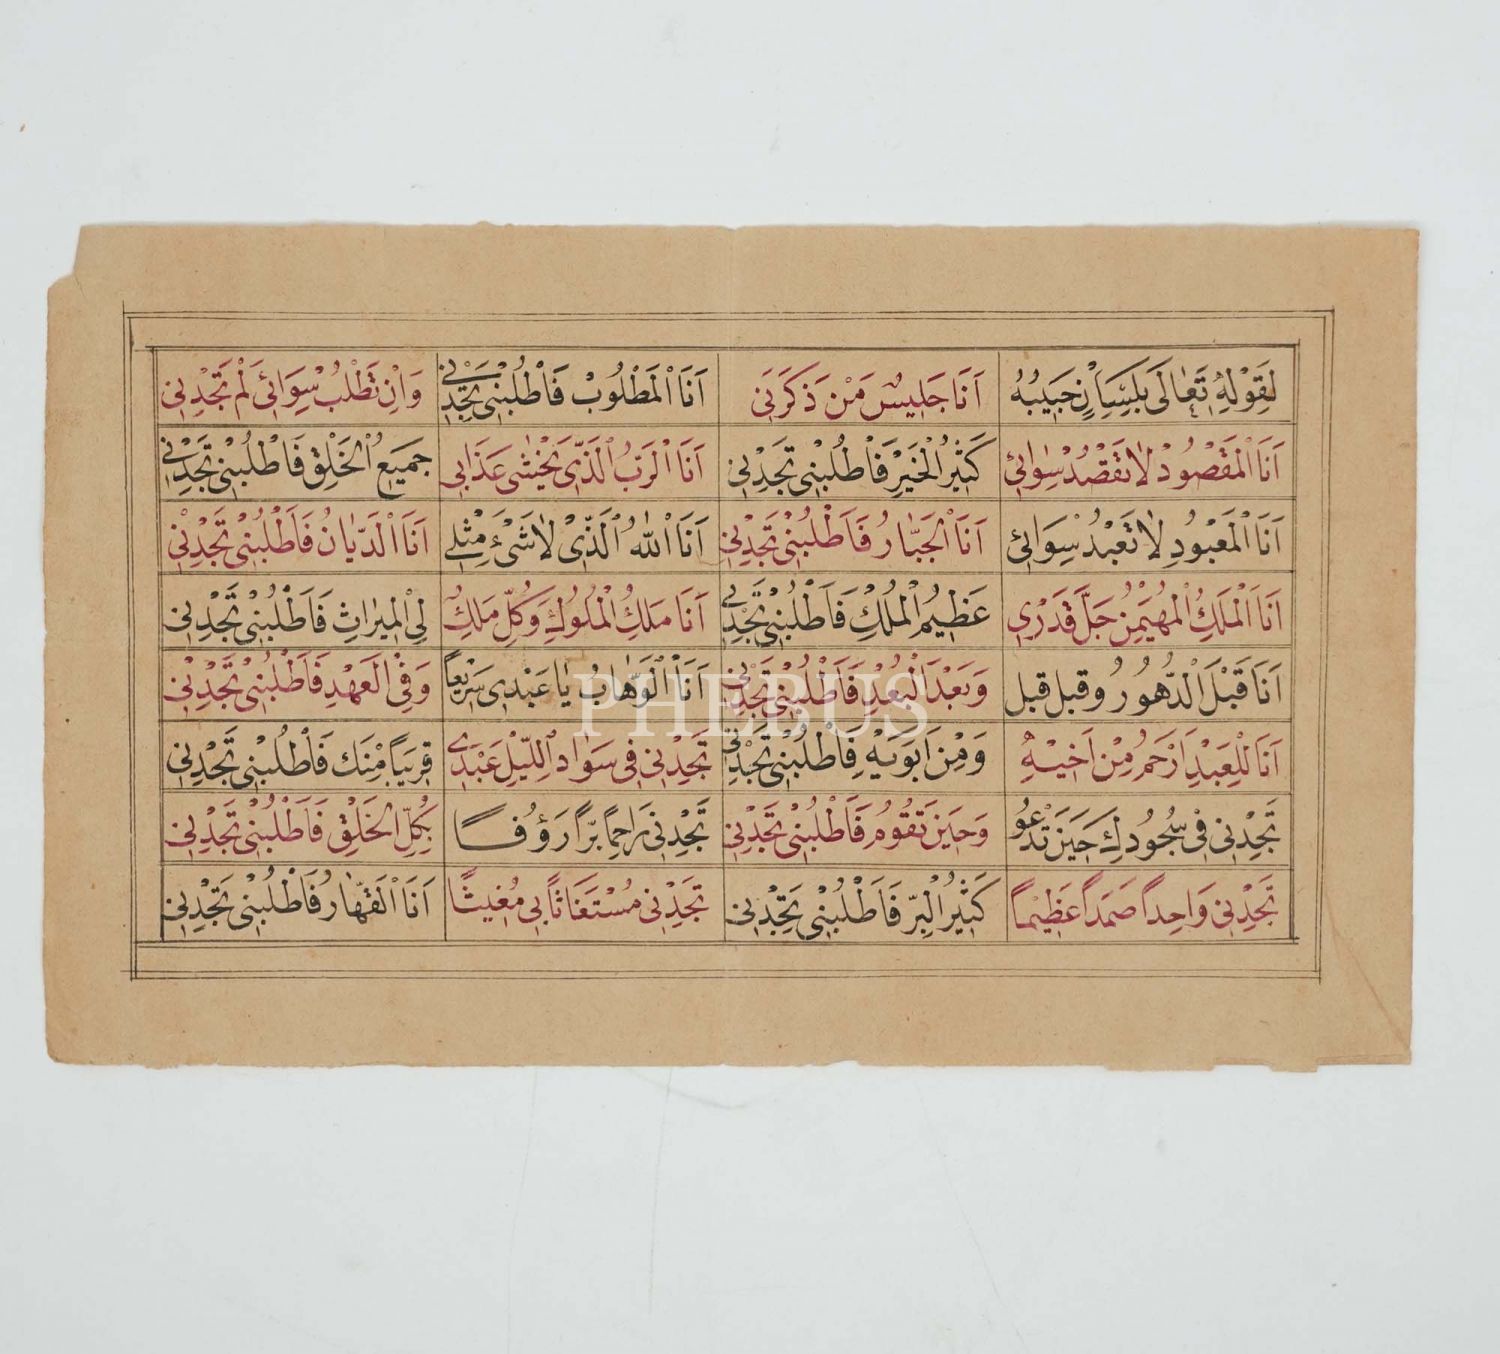 لِقَوْلِهِ تَعَالَى بِلِسَانِ حَبِيبُهُ اَنَا جَلِيسُ مَنْ ذَكَرَنِي اَنَا الْمَطْلُوبْ فَاطْلُبْنِي تَجِدْنِي وَاِنْ تَطْلُبْ سِوَائِي لَمْ تَجِدْنِي
اَنَا الْمَقْصُودْ لَا تَقْصُدْ سِوَائِي كَثِيرُ الْخَيْرِ فَاطْلُبْنِي تَجِدْنِي اَنَا الرَبُّ الَّذِي يَخْشٰى عَذَابِي جَمِيعُ الْخَلْقِ فَاطْلُبْنِي تَجِدْنِي
اَنَا الْمَعْبُودِ لَا تَعْبُدْ سِوَائِي اَنَا الْجَبَّارُ فَاطْلُبْنِي تَجِدْنِي اَنَا اللّٰهُ الَّذِي لَا شَيْءَ مِثْلِي اَنَا الدَّيَّانُ فَاطْلُبْنِي تَجِدْنِي
اَنَا الْمَلِكُ الْمُهَيْمِنُ جَلَّ قَدْرِي عَظِيمُ الْمُلْكِ فَاطْلُبْنِي تَجِدْنِي اَنَا مَلِكُ الْمُلُوكِ وَكُلِّ مَلِكٍ لِي الْمِيرَاثِ فَاطْلُبْنِي تَجِدْنِي
اَنَا قَبْلَ الدُّهُورُ وقبل قبل وَبَعْدَ الْبَعْدِ فَاطْلُبْنِي تَجِدْنِي اَنَا الْوَهَّابُ يَا عَبْدِي سَرِيعًا وَفِي الْعَهْدِ فَاطْلُبْنِي تَجِدْنِي
اَنَا لِلْعَبْدِ اَرْحَمُ مِنْ اَخِيهِ وَمِنْ اَبَوَيْهِ فَاطْلُبْنِي تَجِدْنِي تَجِدْنِي فِي سَوَادِ اللَّيْلِ عَبْدِي قَرِيبًا مِنْكَ فَاطْلُبْنِي تَجِدْنِي
تَجِدْنِي فِي سُجُودِكَ حِينَ تَدْعُو وَحِينَ تَقُومُ فَاطْلُبْنِي تَجِدْنِي تَجِدْنِي رَاحِمًا بَرًّا رَؤُفًا بِكُلِّ الْخَلْقِ فَاطْلُبْنِي تَجِدْنِي
تَجِدْنِي وَاحِدًا صَمَدًا عَظِيمًا كَثِيرُ الْبِرِّ فَاطْلُبْنِي تَجِدْنِي تَجِدْنِي مُسْتَغَاثًا بِي مُغِيثًا اَنَا الْقَهَّارُ فَاطْلُبْنِي تَجِدْنِي
PHEBUS